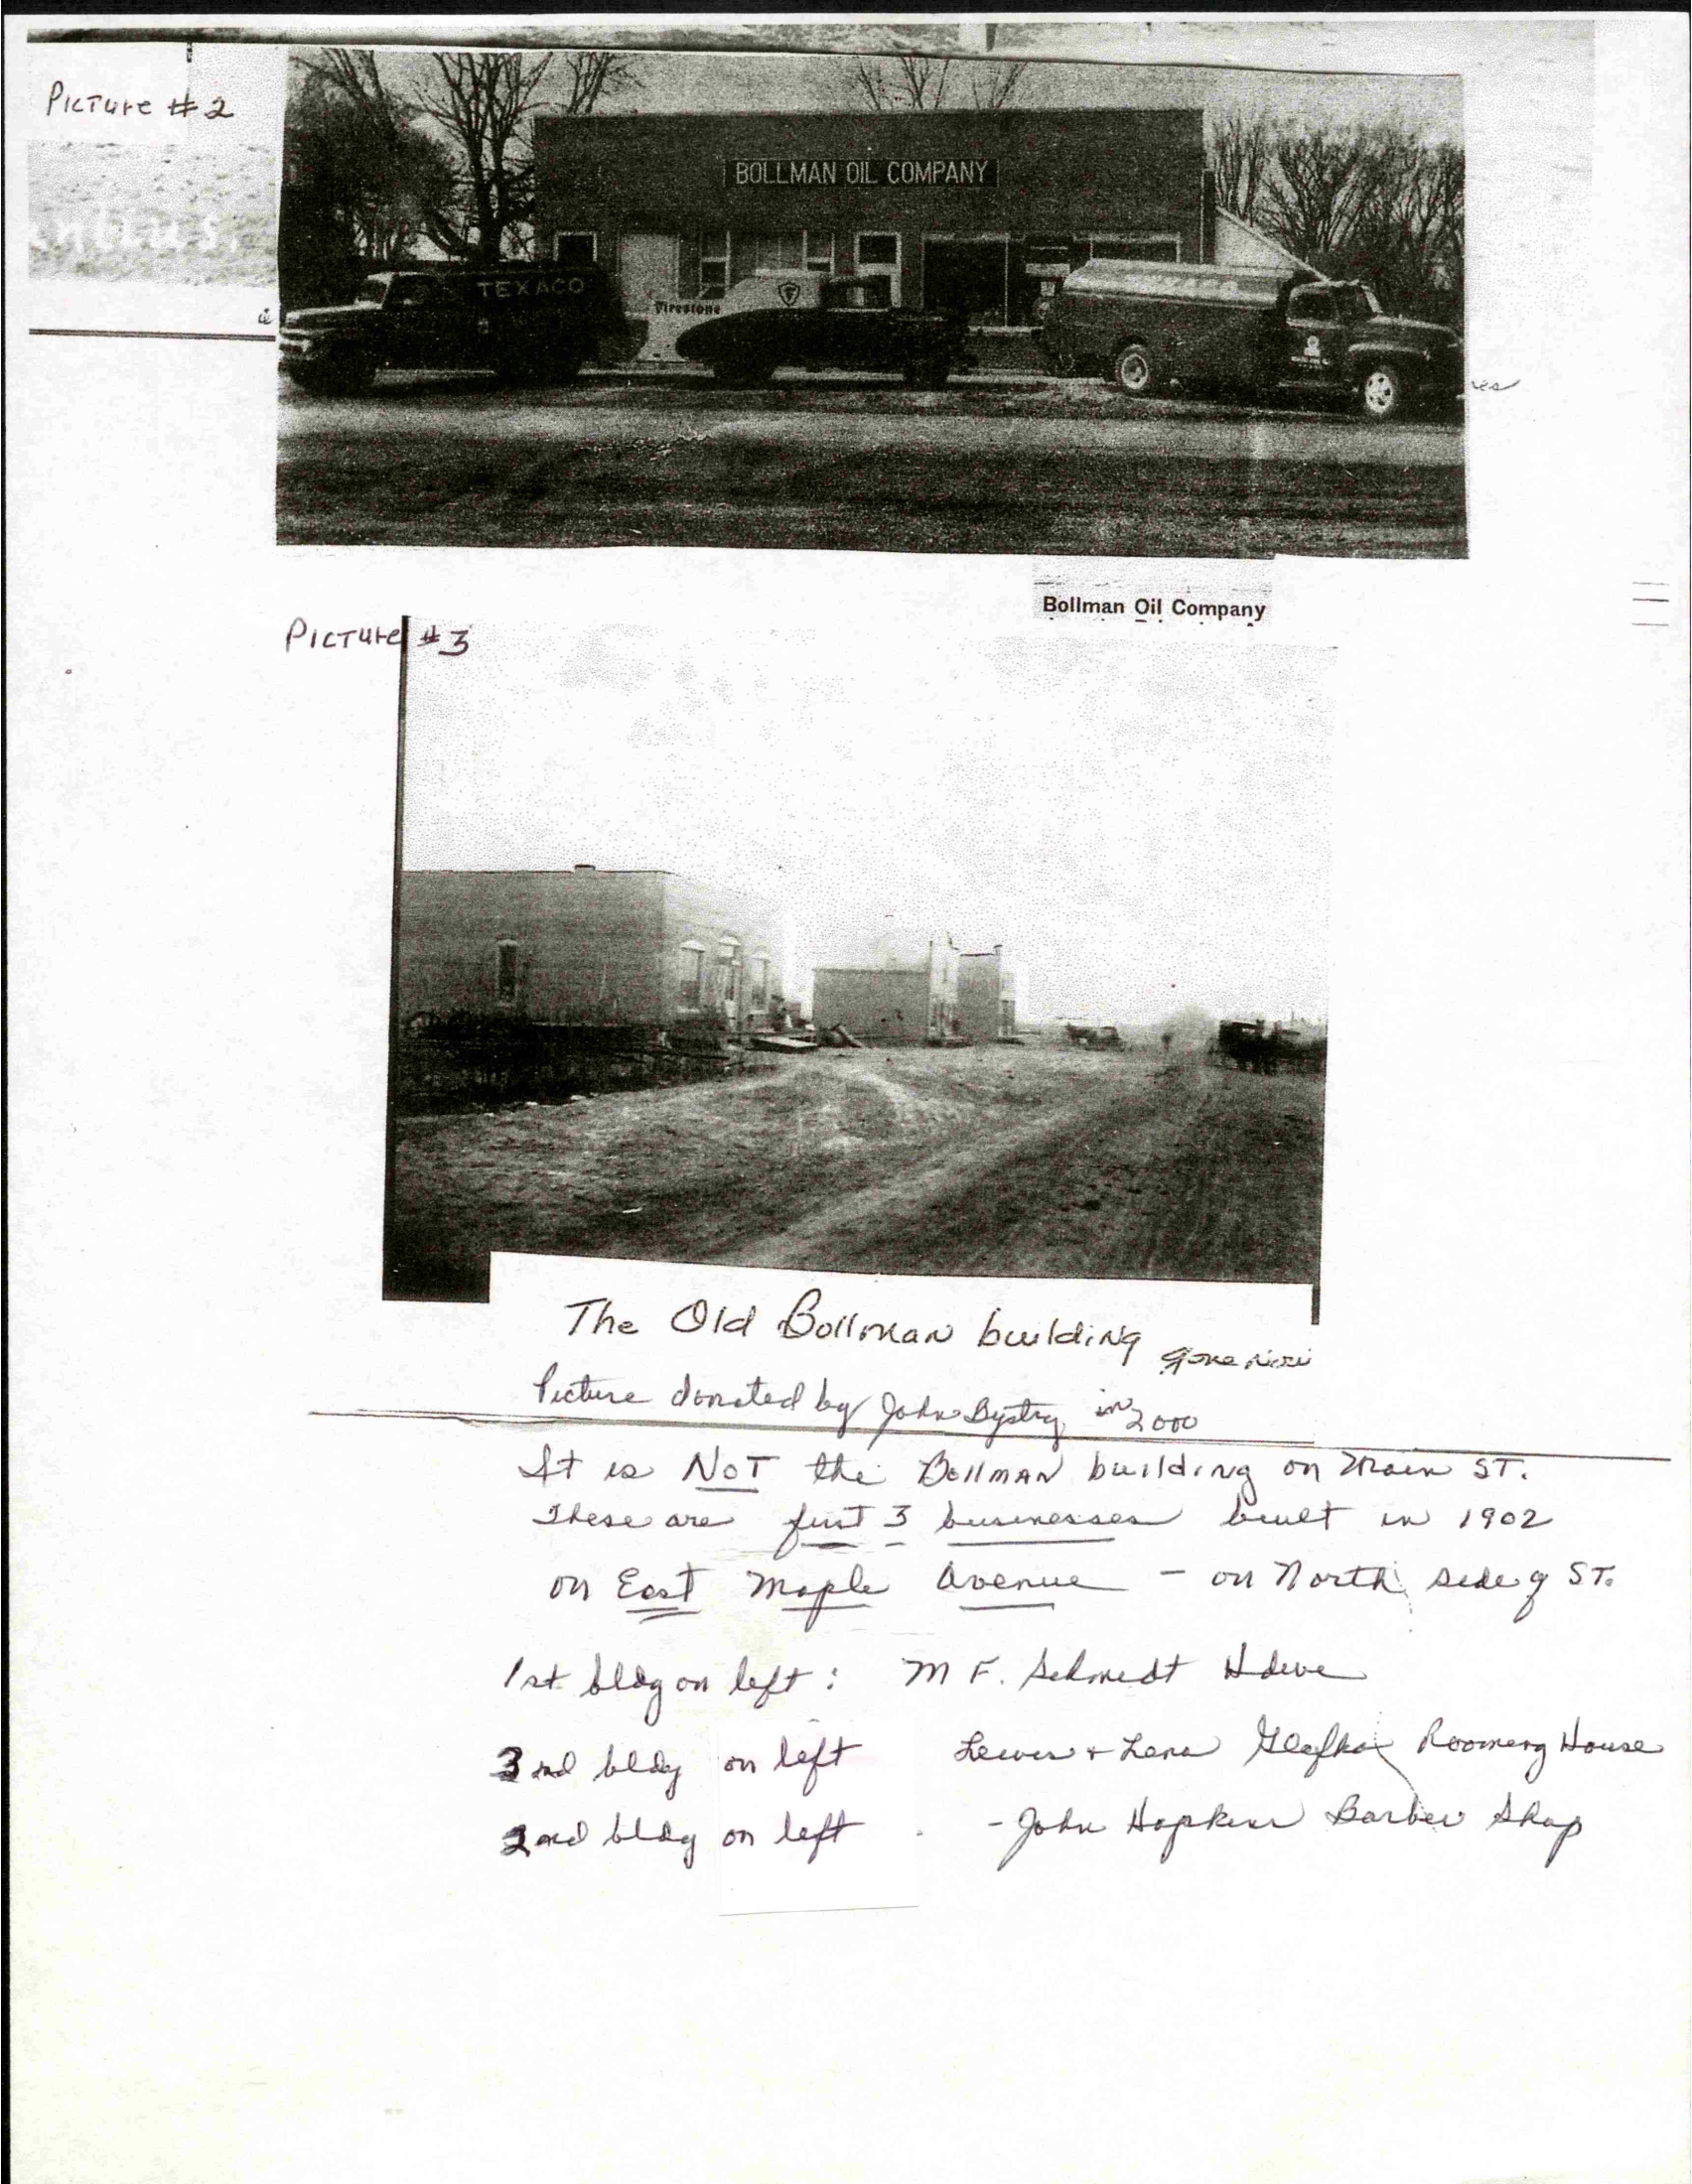 Picture #2
BOLLMAN OIL COMPANY
TEXACO
Firestone
Bollman Oil Company
Picture #3
The Old Bollman building
Picture donated by John Bystry in 2000
It is NOT the Bollman building on Main ST.
These are first 3 businesses built in 1902
on East Maple Avenue - on North side of ST.
1st bldg on left: M F. Schmidt Hdwe
3rd bldg on left Lewis + Lena Rooming House
2nd bldg on left - John Hopkins Barber Shop